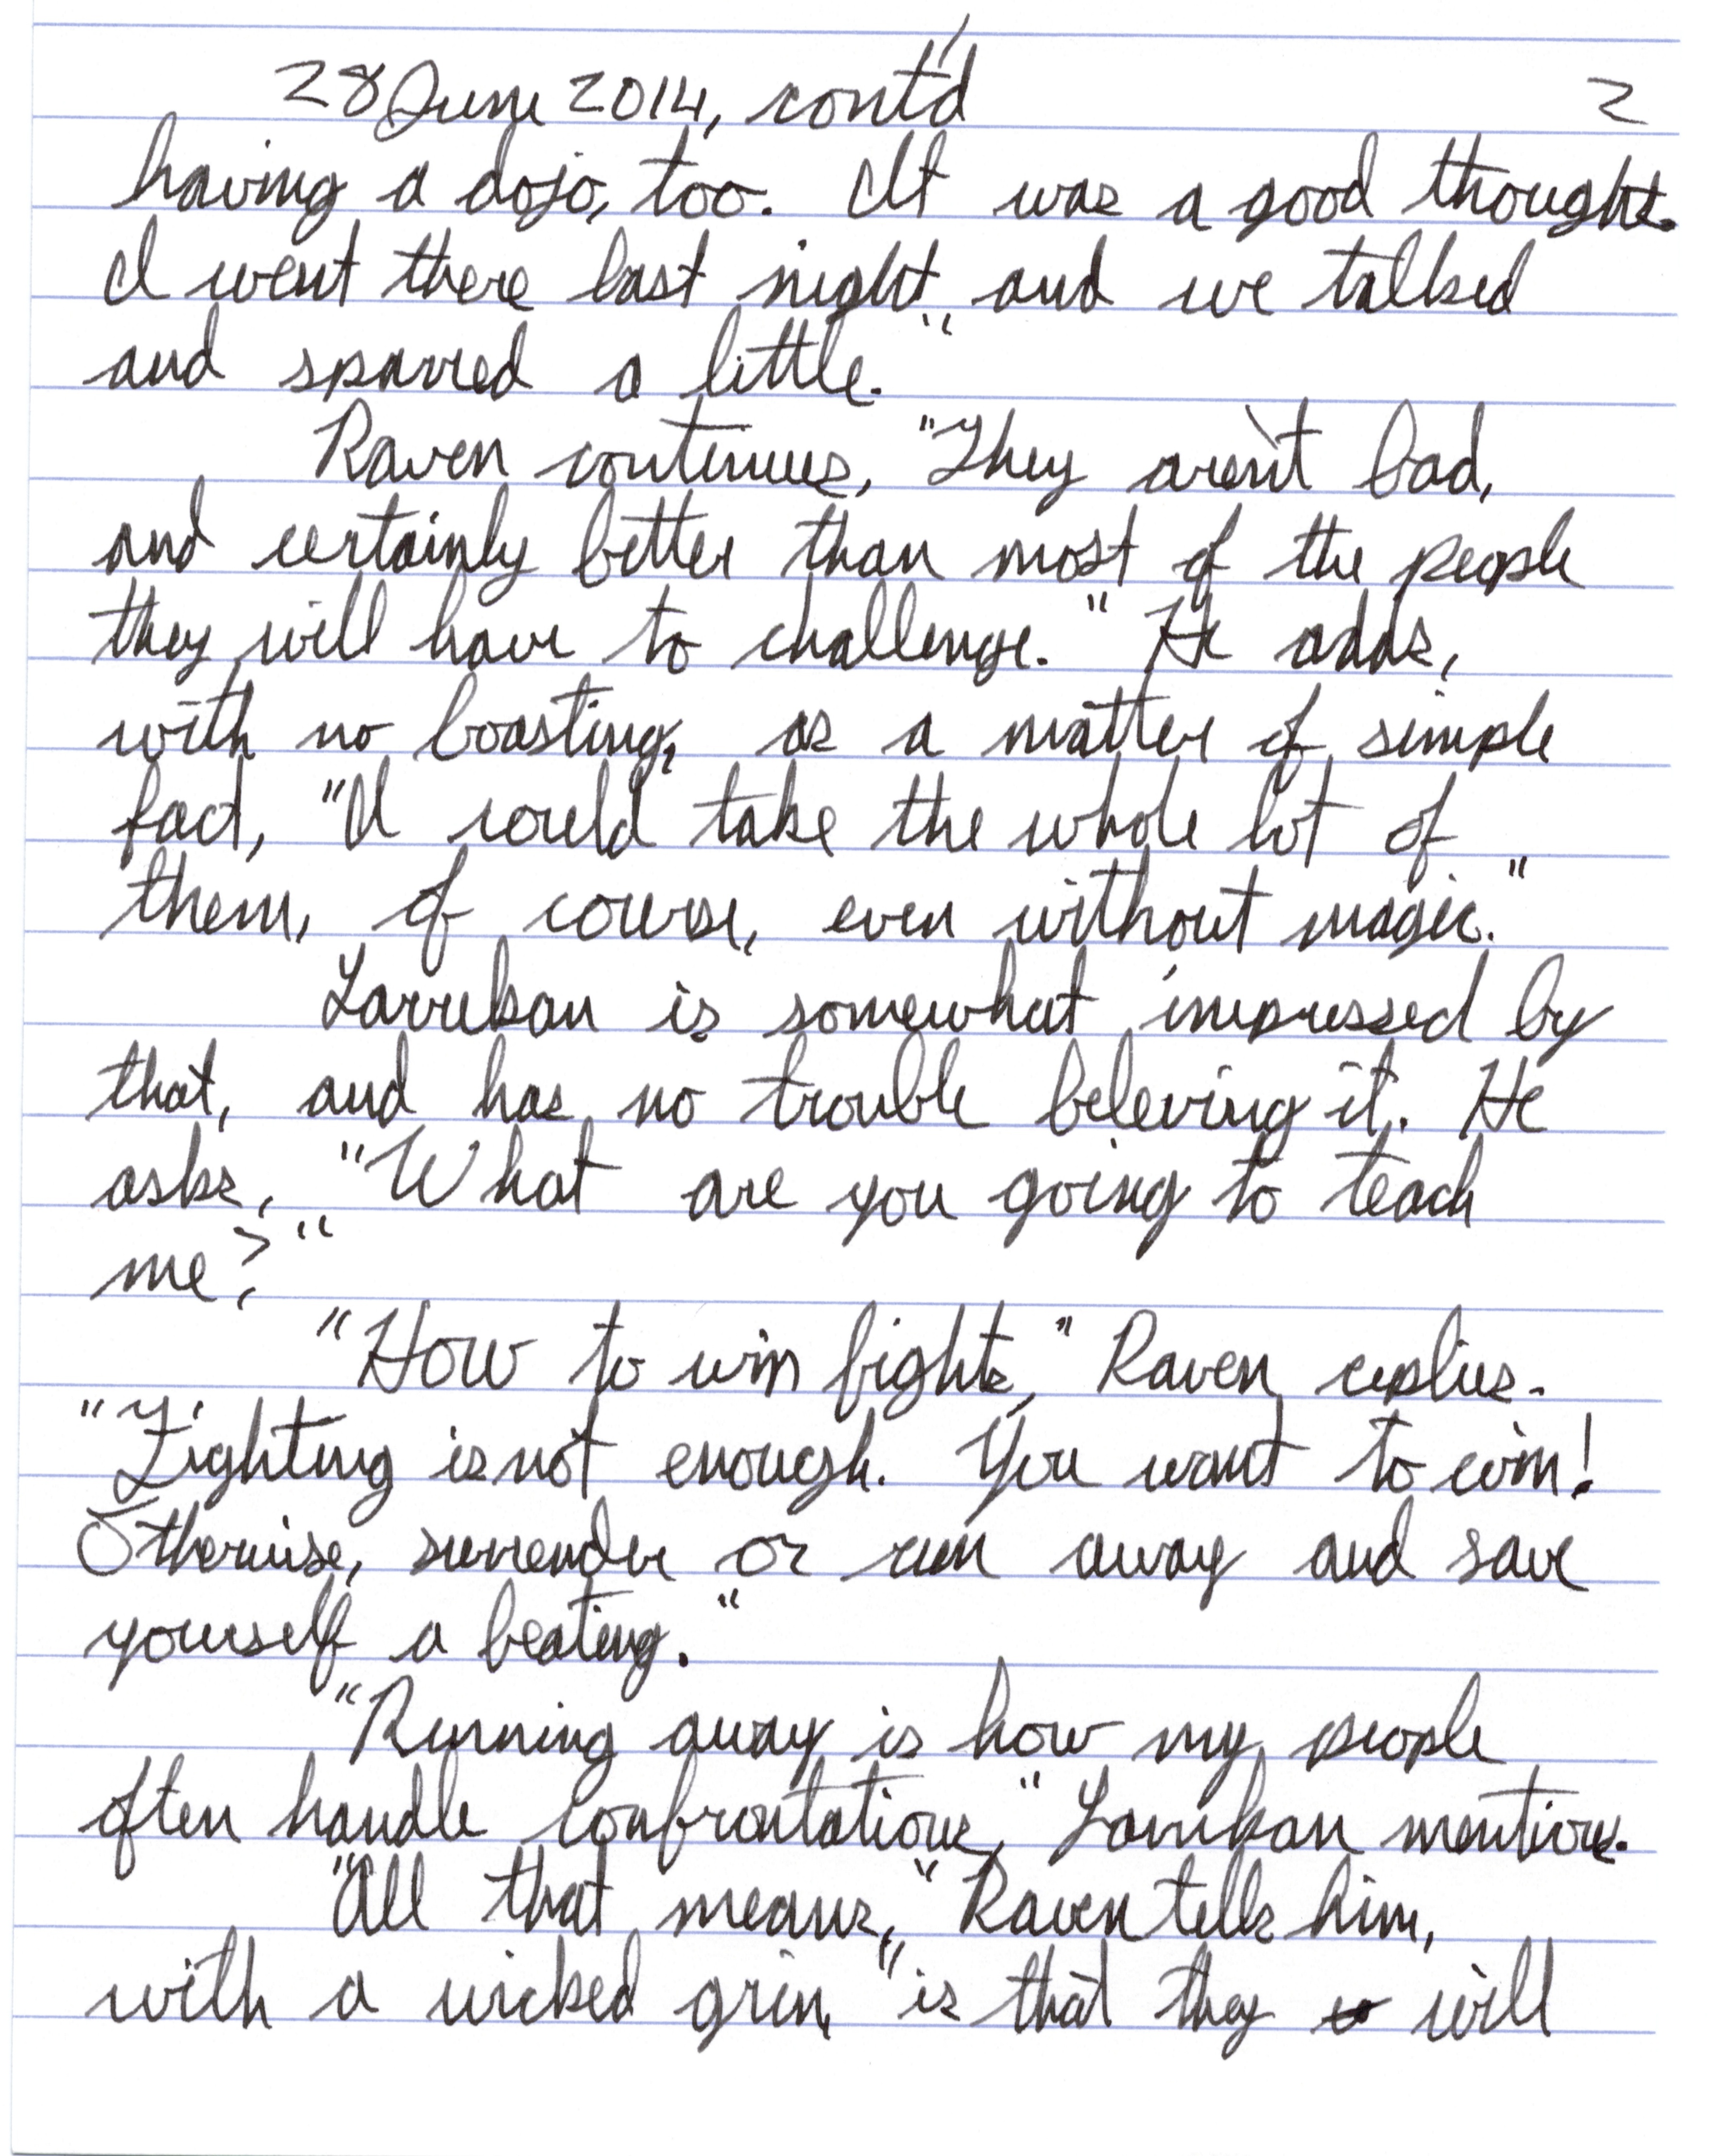 28 June 2014, cont'd 2
having a dojo, too. It was a good thought.
I went there last night and we talked
and sparred a little."
Raven continues, "They aren't bad,
and certainly better than most of the people
they will have to challenge." He adds,
with no boasting, as a matter of simple
fact, "I could take the whole lot of
them, of course, even without magic."
Larrikan is somewhat impressed by
that, and has no trouble beleving it. He
asks, "What are you going to teach
me?"
"How to win fights," Raven replies.
"Fighting is not enough. You want to win!
Otherwise, surrender or run away and save
yourself a beating."
"Running away is how my people
often handle confrontations," Larrikan mentions.
"All that means," Raven tells him,
with a wicked grin, "is that they will